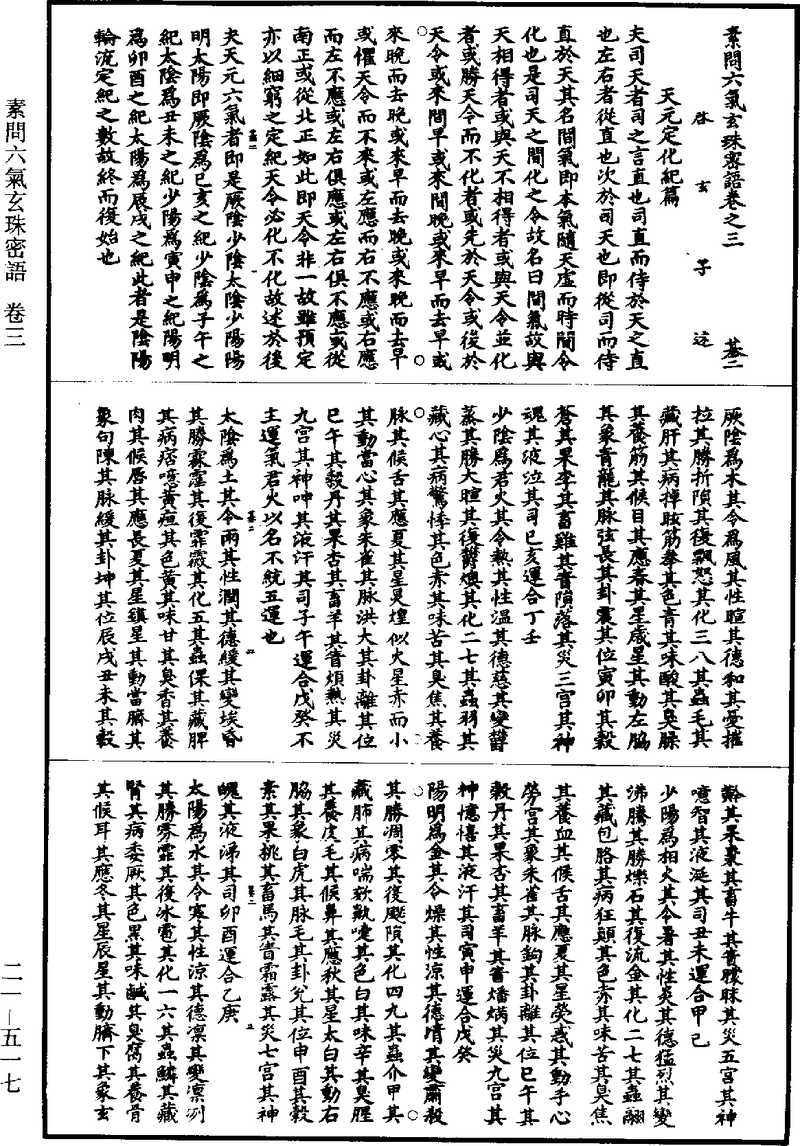 素問六氣玄珠密語卷之三
啓玄子述　基二
天元定化紀篇
夫司天者司之言直也司直而侍於天之直
也左右者從直也次於司天也即從司而侍
直於天其名間氣即本氣隨天虛而時間令
化也是司天之間化之令故名曰間氣故與
天相得者或與天不相得者或與天令並化
者或勝天令而不化者或先於天令或後於
天令或來間早或來間晚或來早而去早或
來晚而去晚或來早而去晚或來晚而去早
或懼天令而不來或左應而右不應或右應
而左不應或左右俱應或左右俱不應或從
南正或從北正如此即天令非一故雖預定
亦以細窮之定紀天令必化不化故述於後
夫天元六氣者即是厥陰少陰太陰少陽陽
明太陽即厥陰為巳亥之紀少陰為子午之
紀太陰為丑未之紀少陽為寅申之紀陽明
為卯酉之紀太陽為辰戌之紀此者是陰陽
輪流定紀之數故終而復始也
厥陰為木其令為風其性暄其德和其憂摧
拉其勝折隕其復飄怒其化三八其蟲毛其
藏肝其病掉眩筋攣其色青其味酸其臭臊
其養筋其候目其應春其星歲星其動左脇
其象青龍其脉弦長其卦震其位寅卯其穀
蒼其果李其畜雞其眚隕落其災三宮其神
魂其液泣其司巳亥運合丁壬
少陰為君火其令熱其性溫其德慈其變鬱
蒸其勝大暄其復鬱燠其化二七其蟲羽其
藏心其病驚悸其色赤其味苦其臭焦其養
脉其候舌其應夏其星炅煌似火星赤而小
其動當心其象朱雀其脉洪大其卦離其位
巳午其穀丹其果杏其畜羊其眚煩熱其災
九宮其神呻其液汗其司子午運合戊癸不
主運氣君火以名不統五運也
太陰為土其令雨其性潤其德緩其變埃昏
其勝霧霪其復霏霰其化五其蟲倮其藏脾
其病痞噫黃疸其色黃其味甘其臭香其養
肉其候唇其應長夏其星鎮星其動當臍其
象句陳其脉緩其卦坤其位辰戌丑未其穀
黅其果棗其畜牛其眚朦昧其災五宮其神
噫智其液涎其司丑未運合甲己
少陽為相火其令暑其性炎其德猛烈其變
沸騰其勝爍石其復流金其化二七其蟲翮
其藏包胳其病狂顛其色赤其味苦其臭焦
其養血其候舌其應夏其星熒惑其動手心
勞宮其象朱雀其脉鉤其卦離其位巳午其
穀丹其果杏其畜羊其眚燔焫其災九宮其
神憶憘其液汗其司寅申運合戊癸
陽明為金其令燥其性涼其德清其變肅殺
其勝凋零其復飈隕其化四九其蟲介甲其
藏肺其病喘欬歔嗌其色白其味辛其臭腥
其養皮毛其候鼻其應秋其星太白其動右
脇其象白虎其脉毛其卦兌其位申酉其穀
素其果桃其畜馬其眚霜露其災七宮其神
魄其液涕其司卯酉運合乙庚
太陽為水其令寒其性涼其德凛其變凛冽
其勝雰霏其復冰雹其化一六其蟲鱗其藏
腎其病委厥其色黑其味鹹其臭腐其養骨
其候耳其應冬其星辰星其動臍下其象玄
素問六氣玄珠密語　卷三
二一—五一七